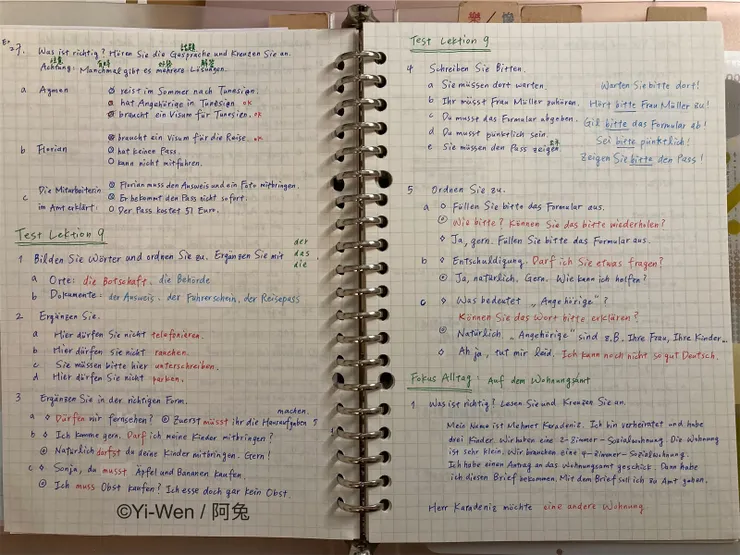 27. Was ist richtig? Hören Sie die Gespräche und Kreuzen Sie an.
Achtung: Manchmal gibt es mehrere Lösungen.
a Aymen reist im Sommer nach Tunesien.
hat Angehörige in Tunesien. ok
braucht ein Visum für Tunesien. ok
braucht ein Visum für die Reise. ok
b Florian hat keinen Pass.
kann nicht mitfahren.
c Die Mitarbeiterin im Amt erklärt:
Florian muss den Ausweis und ein Foto mitbringen.
Er bekommt den Pass nicht sofort.
Der Pass kostet 51 Euro.
Test Lektion 9
der
das
die
1 Bilden Sie Wörter und ordnen Sie zu. Ergänzen Sie mit
a Orte: die Botschaft, die Behörde
b Dokumente: der Ausweis, der Führerschein, der Reisepass
2 Ergänzen Sie.
a Hier dürfen Sie nicht telefonieren.
b Hier dürfen Sie nicht rauchen.
c Sie müssen bitte hier unterschreiben.
d Hier dürfen Sie nicht parken.
3 Ergänzen Sie in der richtigen Form.
machen.
a Dürfen wir fernsehen? Zuerst müsst ihr die Hausaufgaben
b Ich komme gern. Darf ich meine Kinder mitbringen?
Natürlich darfst du deine Kinder mitbringen. Gern!
c Sonja, du musst Äpfel und Bananen kaufen.
Ich muss Obst kaufen? Ich esse doch gar kein Obst.
©Yi-Wen / 阿兔
樂
Test Lektion 9
4 Schreiben Sie Bitten.
a Sie müssen dort warten. Warten Sie bitte dort!
b Ihr müsst Frau Müller zuhören. Hört bitte Frau Müller zu!
c Du musst das Formular abgeben. Gib bitte das Formular ab!
d Du musst pünktlich sein. Sei bitte pünktlich!
e Sie müssen den Pass zeigen. Zeigen Sie bitte den Pass!
5 Ordnen Sie zu.
a Füllen Sie bitte das Formular aus.
Wie bitte? Können Sie das bitte wiederholen?
Ja, gern. Füllen Sie bitte das Formular aus.
b Entschuldigung. Darf ich Sie etwas fragen?
Ja, natürlich. Gern. Wie kann ich helfen?
c Was bedeutet „Angehörige"?
Können Sie das Wort bitte erklären?
Natürlich. „Angehörige" sind z.B. Ihre Frau, Ihre Kinder...
Ah ja, tut mir leid. Ich kann noch nicht so gut Deutsch.
Fokus Alltag Auf dem Wohnungsamt
1 Was ist richtig? Lesen Sie und Kreuzen Sie an.
Mein Name ist Mehmet Karadeniz. Ich bin verheiratet und habe
drei Kinder. Wir haben eine 2-Zimmer-Sozialwohnung. Die Wohnung
ist sehr klein. Wir brauchen eine 4-Zimmer-Sozialwohnung.
Ich habe einen Antrag an das Wohnungsamt geschickt. Dann habe
ich diesen Brief bekommen. Mit dem Brief soll ich zu Amt gehen.
Herr Karadeniz möchte eine andere Wohnung.